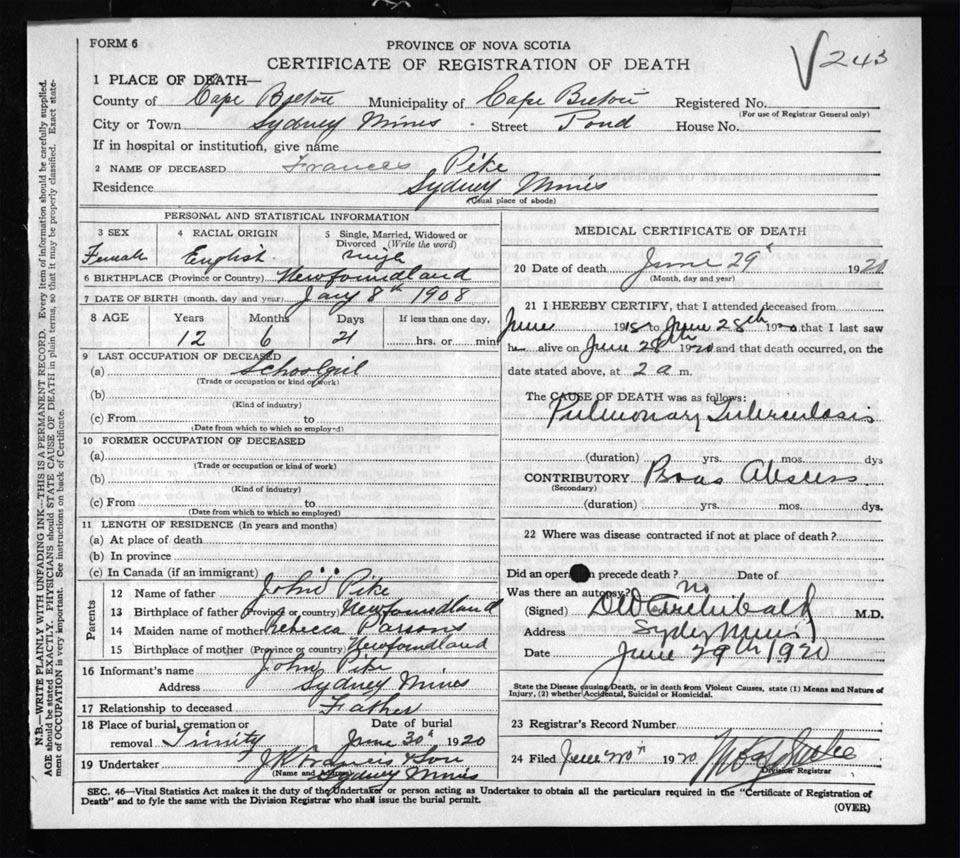 FORM 6
PROVINCE OF NOVA SCOTIA
CERTIFICATE OF REGISTRATION OF DEATH
V 243
1 PLACE OF DEATH—
County of Cape Breton Municipality of Cape Breton Registered No.
(For use of Registrar General only)
City or Town Sydney Mines Street Pond House No.
If in hospital or institution, give name
2 NAME OF DECEASED Frances Pike
Residence Sydney Mines
(Usual place of abode)
PERSONAL AND STATISTICAL INFORMATION
3 SEX 4 RACIAL ORIGIN 5 Single, Married, Widowed or Divorced (Write the word)
Female English single
6 BIRTHPLACE (Province or Country) Newfoundland
7 DATE OF BIRTH (month, day and year) Jany 8th 1908
8 AGE Years Months Days If less than one day,
12 6 21 hrs. or min
9 LAST OCCUPATION OF DECEASED
(a) Schoolgirl
(Trade or occupation or kind of work)
(b)
(Kind of industry)
(c) From to
(Date from which to which so employed)
10 FORMER OCCUPATION OF DECEASED
(a)
(Trade or occupation or kind of work)
(b)
(Kind of industry)
(c) From to
(Date from which to which so employed)
11 LENGTH OF RESIDENCE (In years and months)
(a) At place of death
(b) In province
(c) In Canada (if an immigrant)
Parents
12 Name of father John Pike
13 Birthplace of father (Province or country) Newfoundland
14 Maiden name of mother Rebecca Parsons
15 Birthplace of mother (Province or country) Newfoundland
16 Informant's name John Pike
Address Sydney Mines
17 Relationship to deceased Father
18 Place of burial, cremation or Date of burial
removal Trinity June 30th 1920
19 Undertaker J.R. Francis & Son
(Name and Address) Sydney Mines
MEDICAL CERTIFICATE OF DEATH
20 Date of death June 29th 1920
(Month, day and year)
21 I HEREBY CERTIFY, that I attended deceased from
June 1918 to June 28th 1920 that I last saw
h alive on June 28th 1920 and that death occurred, on the
date stated above, at 2 a m.
The CAUSE OF DEATH was as follows:
Pulmonary Tuberculosis
(duration) yrs. mos. dys
CONTRIBUTORY Psoas Abscess
(Secondary)
(duration) yrs. mos. dys.
22 Where was disease contracted if not at place of death?
Did an operation precede death? Date of
Was there an autopsy? no
(Signed) Archibald M.D.
Address Sydney Mines
Date June 29th 1920
State the Disease causing Death, or in death from Violent Causes, state (1) Means and Nature of
Injury, (2) whether Accidental, Suicidal or Homicidal.
23 Registrar's Record Number
24 Filed June 1920
Division Registrar
SEC. 46—Vital Statistics Act makes it the duty of the Undertaker or person acting as Undertaker to obtain all the particulars required in the "Certificate of Registration of
Death" and to fyle the same with the Division Registrar who shall issue the burial permit.
(OVER)
N.B.—WRITE PLAINLY WITH UNFADING INK—THIS IS A PERMANENT RECORD. Every item of information should be carefully supplied.
AGE should be stated EXACTLY. PHYSICIANS should STATE CAUSE OF DEATH in plain terms, so that it may be properly classified. Exact state-
ment of OCCUPATION is very important. See instructions on back of Certificate.